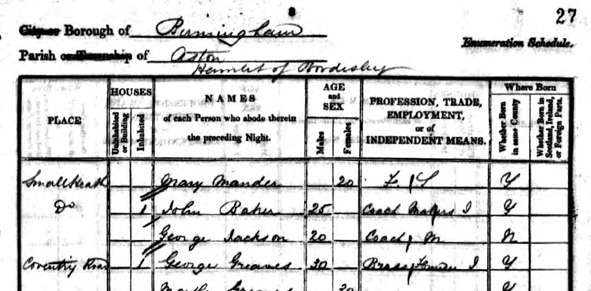 27
City or Borough of Birmingham
Enumeration Schedule.
Parish or Township of Aston
Hamlet of Bordesley
PLACE
HOUSES
Uninhabited or Building
Inhabited
NAMES
of each Person who abode therein
the preceding Night.
AGE and SEX
Males
Females
PROFESSION, TRADE,
EMPLOYMENT,
or of
INDEPENDENT MEANS.
Where Born
Whether Born in same County
Whether Born in Scotland, Ireland, or Foreign Parts.
Small Heath Mary Mander 20 F S Y
Do 1 John Baker 25 Coach Makers J Y
George Jackson 20 Coach M N
Coventry Road 1 George Greaves 30 Brass Founder J Y
Greaves 30 Y